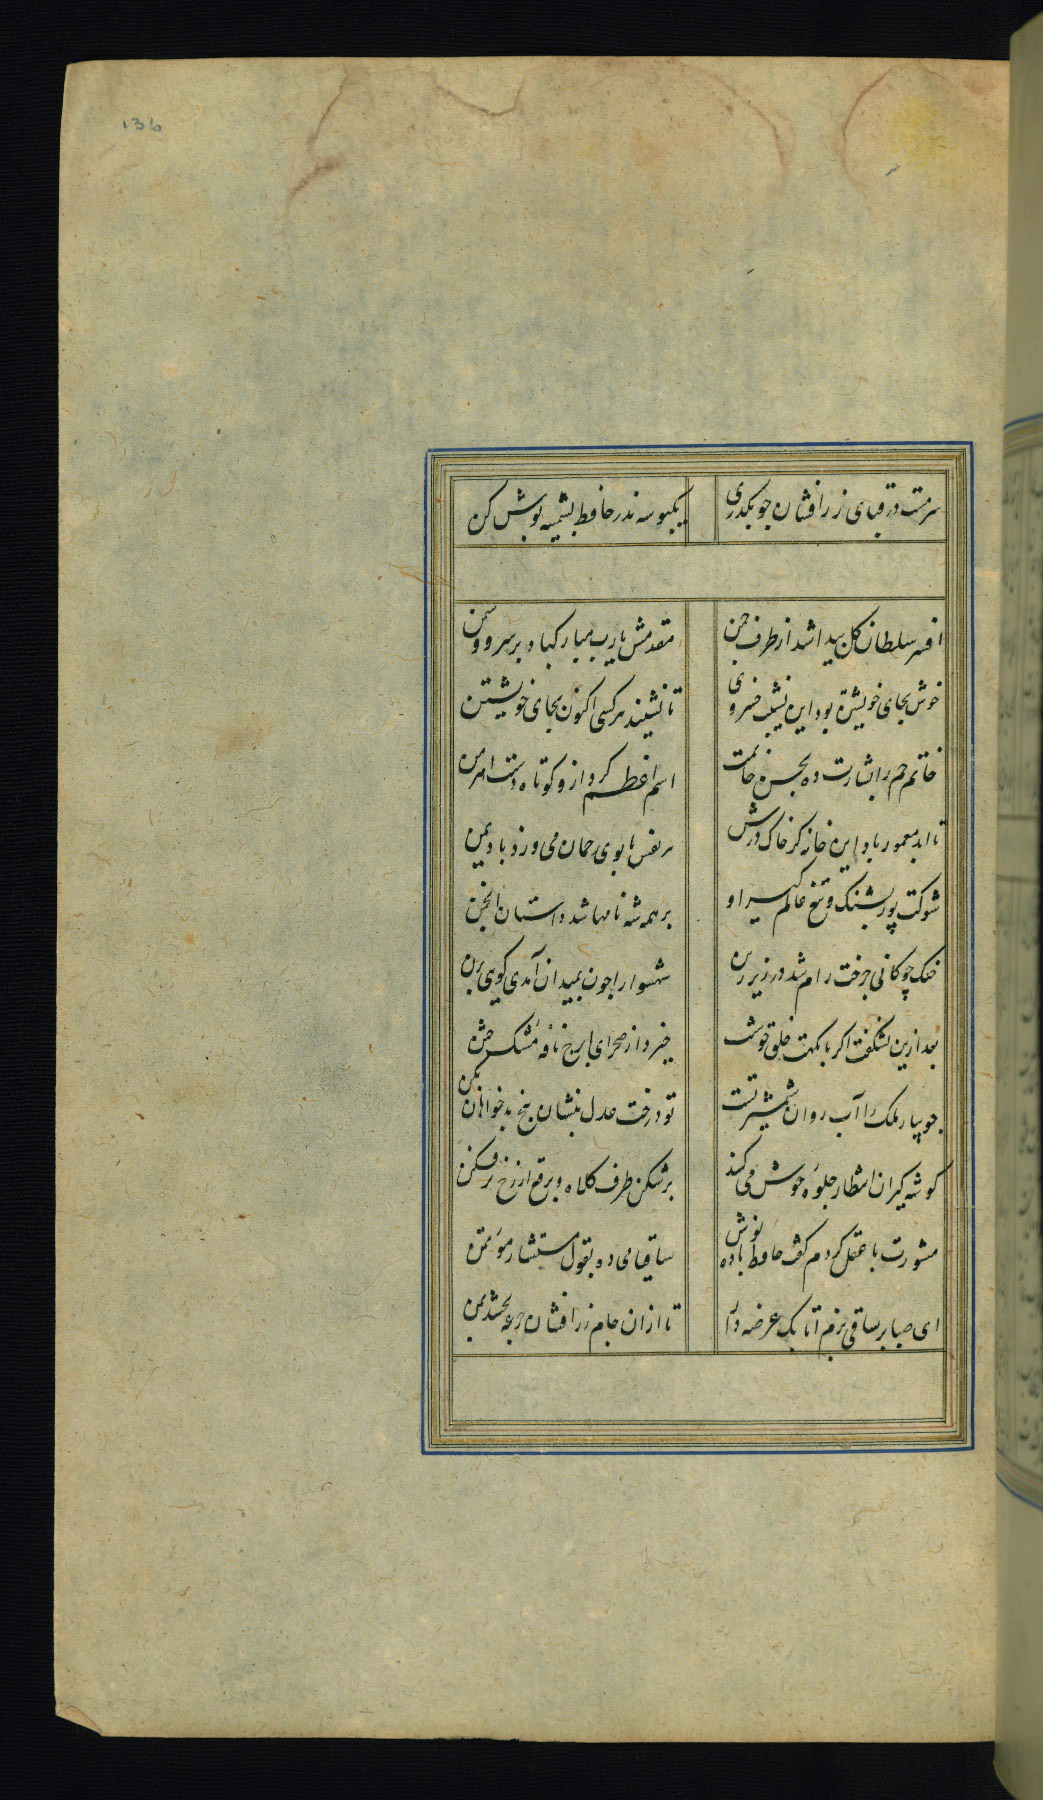 136
سرمست در قبای زرافشان چو بگذری
یکبوسه نذر حافظ پشمینه پوش کن
افسر سلطان کل پیدا شد از طرف چمن
مقدمش یارب مبارکباد بر سرو و سمن
خوش بجای خویشتن بود این نشست خسروی
تا نشیند هر کسی اکنون بجای خویشتن
خاتم جم را بشارت ده بحسن خاتمت
اسم اعظم کرد ازو کوتاه دست اهرمن
تا ابد معمور باد این خانه کز خاک درش
هر نفس با بوی رحمان می وزد باد یمن
شوکت پور پشنک و تیغ عالمگیر او
بر همه شه نامها شد داستان انجمن
خنک چوکانی چرخت رام شد در زیر زین
شهسوارا چون بمیدان آمدی کویی بزن
بعد ازین نشکفت اکر با نکهت خلق خوشت
خیزد از صحرای ایرج نافه مشک ختن
جویبار ملک را آب روان شمشیر تست
تو درخت عدل بنشان بیخ بدخواهان بکن
کوشه کیران انتظار جلوه خوش می کنند
برشکن طرف کلاه و برقع از رخ برفکن
مشورت با عقل کردم کفت حافظ باده بنوش
ساقیا می ده بقول مستشار مؤتمن
ای صبا بر ساقی بزم اتابک عرضه دار
تا از ان جام زرافشان جرعه بخشد بمن